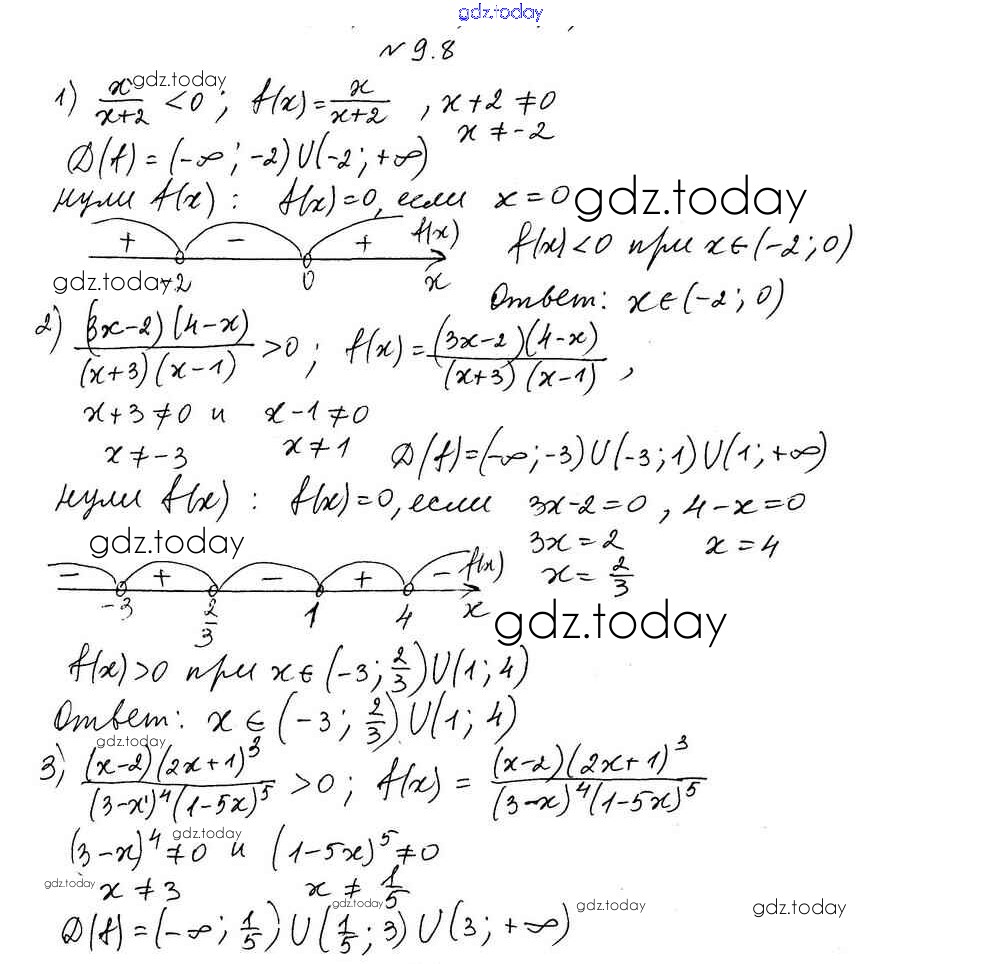 gdz.today
№ 9.8
1) x/(x+2) < 0 ; f(x) = x/(x+2) , x + 2 ≠ 0
gdz.today
x ≠ -2
D(f) = (-∞; -2) ∪ (-2; +∞)
нули f(x) : f(x) = 0, если x = 0
gdz.today
+ − + f(x)
-2 0 x
gdz.today
f(x) < 0 при x ∈ (-2; 0)
Ответ: x ∈ (-2; 0)
2) (3x-2)(4-x)/((x+3)(x-1)) > 0 ; f(x) = (3x-2)(4-x)/((x+3)(x-1)) ,
x + 3 ≠ 0 и x - 1 ≠ 0
x ≠ -3 x ≠ 1 D(f) = (-∞; -3) ∪ (-3; 1) ∪ (1; +∞)
нули f(x) : f(x) = 0, если 3x-2 = 0 , 4-x = 0
gdz.today
3x = 2 x = 4
x = 2/3
− + − + − f(x)
-3 2/3 1 4 x
gdz.today
f(x) > 0 при x ∈ (-3; 2/3) ∪ (1; 4)
Ответ: x ∈ (-3; 2/3) ∪ (1; 4)
gdz.today
3) (x-2)(2x+1)³/((3-x)⁴(1-5x)⁵) > 0 ; f(x) = (x-2)(2x+1)³/((3-x)⁴(1-5x)⁵)
gdz.today
(3-x)⁴ ≠ 0 и (1-5x)⁵ ≠ 0
gdz.today
x ≠ 3 x ≠ 1/5
gdz.today
gdz.today
gdz.today
D(f) = (-∞; 1/5) ∪ (1/5; 3) ∪ (3; +∞)